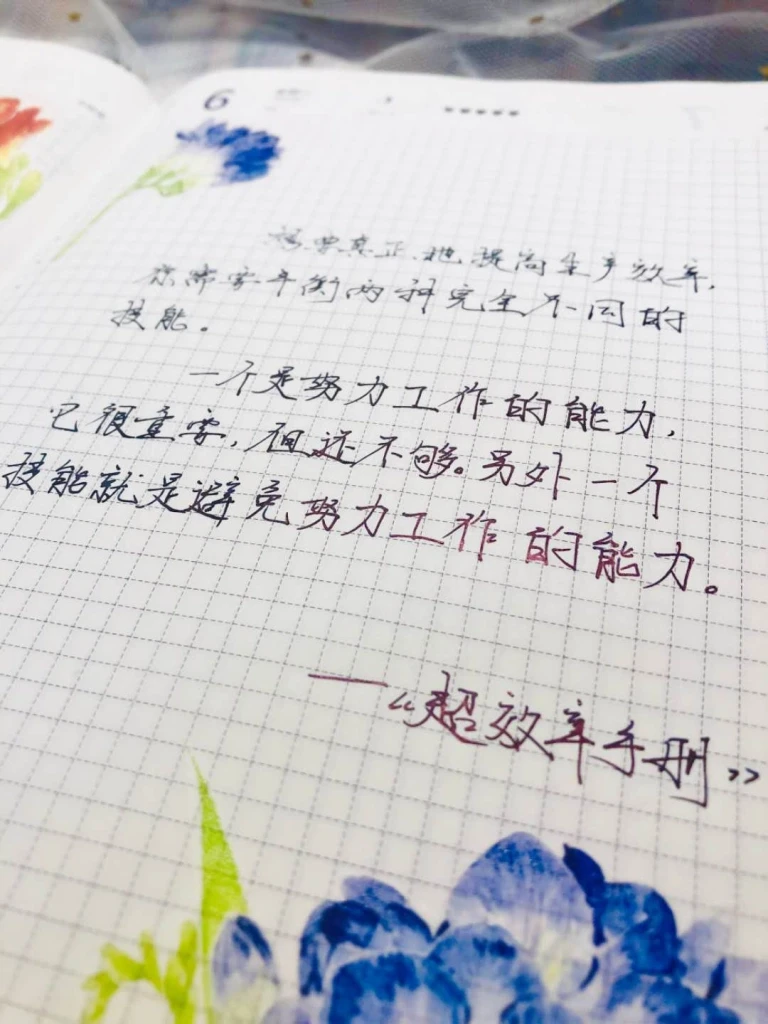 6
想要真正地提高生产效率,
你需要平衡两种完全不同的
技能。
一个是努力工作的能力,
它很重要,但还不够。另外一个
技能就是避免努力工作的能力。
——《超效率手册》